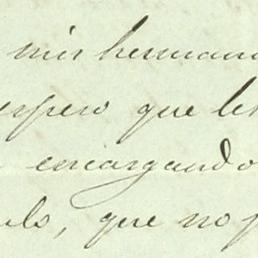 mis hermano
espero que le
encargando
que no p